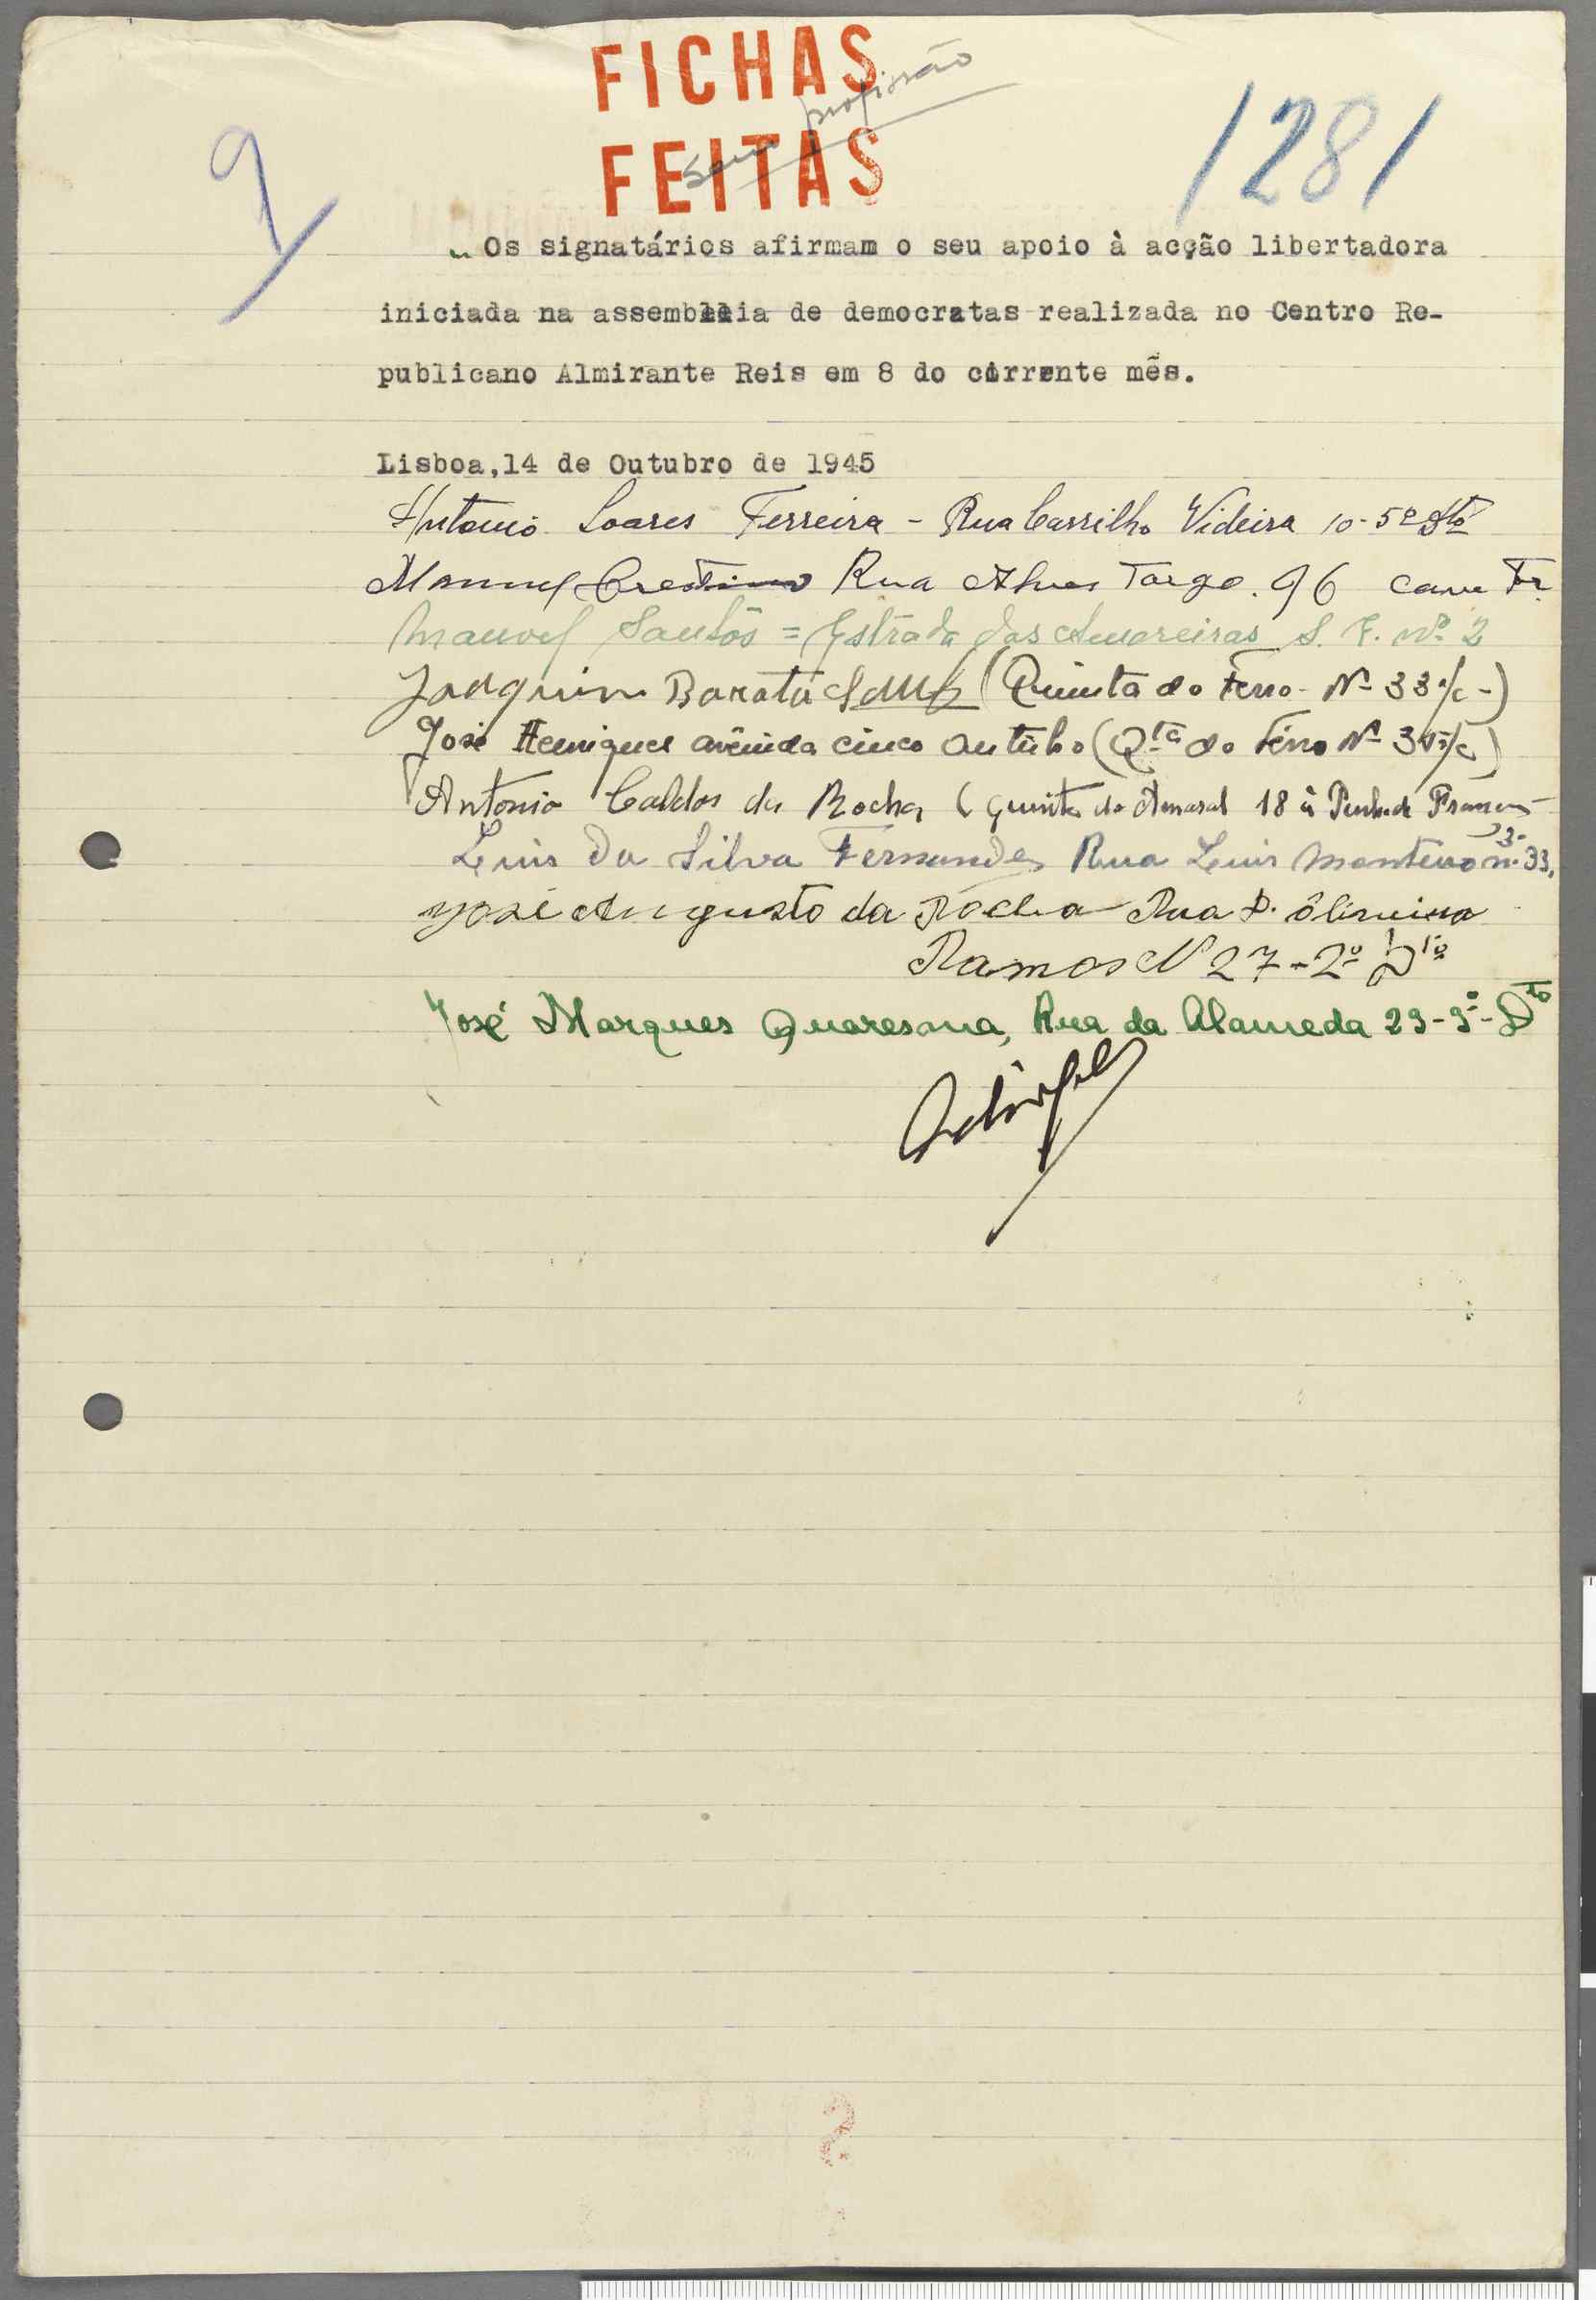 FICHAS
sem profissão
FEITAS
9
1281
Os signatários afirmam o seu apoio à acção libertadora
iniciada na assembleia de democratas realizada no Centro Re-
publicano Almirante Reis em 8 do corrente mês.
Lisboa,14 de Outubro de 1945
Antonio Soares Ferreira - Rua Carrilho Videira 10-5º Dtº
Manuel Rua Alves Torgo. 96 cave
Manoel Santos = Estrada das Amoreiras S. F. Nº 2
Joaquim Barata (Quinta do Ferro - Nº 33 r/c -)
José Henriques avênida cinco outubro (Qta do Ferro Nº r/c)
Antonio Caldos da Rocha (Quinta do Amaral 18 à Penha de França
Luis Da Silva Fernandes Rua Luis Monteiro nº 33,
José Augusto da Rocha Rua D.
Ramos Nº 27-2º Dto
José Marques Quaresma, Rua da Alameda 29-3º-Dto